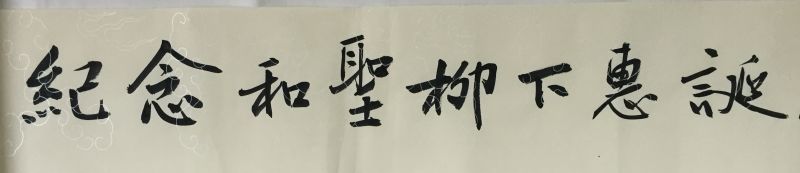 紀念和聖柳下惠誕